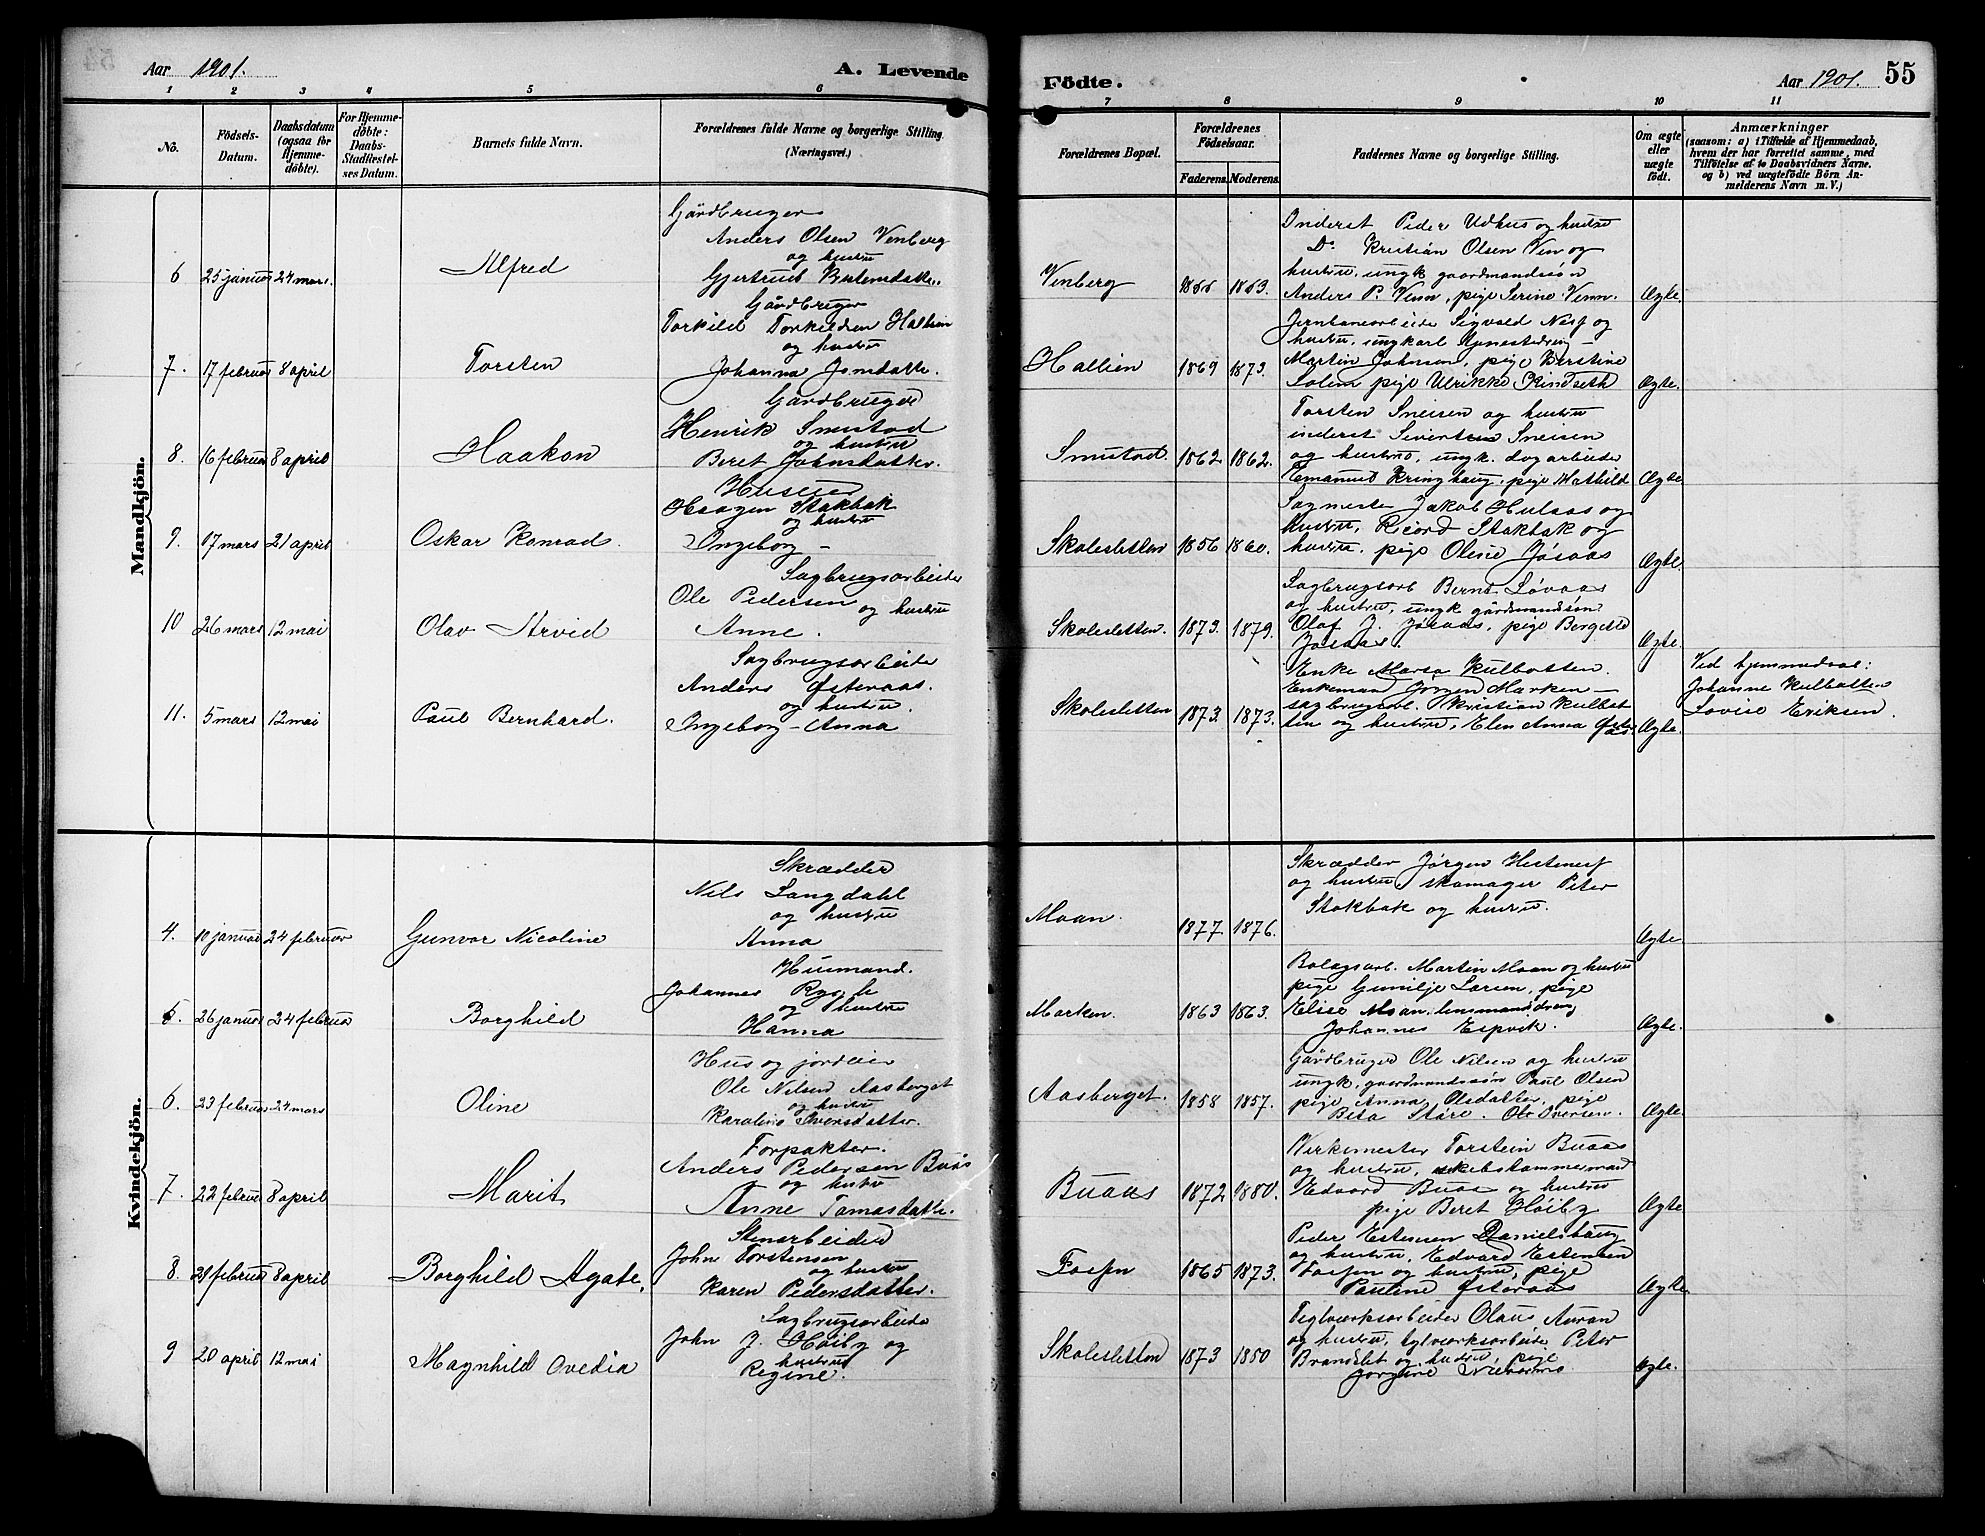 Aar 1901.
A. Levende
Födte.
Aar 1901.
55
1 2 3 4 5 6 7 8 9 10 11
No.
Födsels-Datum.
Daabsdatum (ogsaa for Hjemme-döbte).
For Hjemme-döbte: Daabs-Stadfæstel-ses Datum.
Barnets fulde Navn.
Forældrenes fulde Navne og borgerlige Stilling.
(Næringsvei.)
Forældrenes Bopæl.
Forældrenes Födselsaar.
Faderens. Moderens.
Faddernes Navne og borgerlige Stilling.
Om ægte eller uægte födt.
Anmærkninger
(saasom: a) i Tilfælde af Hjemmedaab,
hvem der har forrettet samme, med
Tilföielse af to Daabsvidners Navne.
og b) ved uægtefödte Börn An-
melderens Navn m. V.)
Mandkjön.
6 25 januar 24 mars. Alfred
Gårdbruger
Anders Olsen Venberg
og hustru
Gjertrud
Venberg 1863.
Inderst Peder Udhus og hustru
Do Kristian Olsen Ven og
hustru, ungk gaardmandssön
Anders P. Venn, pige Serine Venn.
Ægte.
7. 17 februar 8 april Torsten
Gårdbruger
Torkild Torkildsen Hallien
og hustru
Johanna Jonsdatter.
Hallien 1869 1873.
Jernbanearbeider Sigvald Nesf og
hustru, ungkarl
Martin Johnsen, pige Kirstine
Solem pige Ulrikke Rindseth
Ægte.
8. 16 februar 8 april Haakon
Gårdbruger
Henrik Smistad
og hustru
Beret Johnsdatter.
Smistad 1862 1862.
Torsten Sneisen og hustru
inderst Sivert Sneisen
og hustru, ungk. dagarbeider
Emanuel Kringhaug, pige Mathild
Ægte
9. 17 mars 21 april Oskar Konrad.
Huseier
Haagen Stokbak
og hustru
Ingeborg –
Skolesletten 1856 1860.
Sagmester Jakob Hulaas og
hustru, Ricord Stokbak og
hustru, pige Oline Jösaas
Ægte.
10 26 mars 12 mai Olav Arvid
Sagbrugsarbeider
Ole Pedersen og hustru
Anne.
Skolesletten. 1873. 1879.
Sagbrugsarb Bernt Lövaas
og hustru, ungk gårdmandssön
Olaf J. Jösaas, pige Bergitte
Jösaas.
Ægte.
11. 5 mars 12 mai Paul Bernhard.
Sagbrugsarbeider
Anders Østeraas.
og hustru.
Ingeborg – Anna
Skolesletten 1873. 1873.
Enke Marta Kulbotten.
Enkeman Jörgen Marken –
sagbrugsarb. Kristian Kulbot
ten og hustru, Elen Anna Øster
aas
Ægte.
Ved hjemmedaab:
Johanne Kulbotten
Lovise Eriksen.
Kvindekjön.
4. 10 januar 24 februar Gunvor Nicoline
Skrædder
Nils Langdahl
og hustru
Anna
Moan. 1877 1876.
Skrædder Jørgen Hestnesf
og hustru, skomager Peter
Stokbak og hustru.
Ægte.
5. 26 januar 24 februar Borghild
Husmand.
Johannes
og hustru
Hanna
Marken. 1863 1863.
Bolagsarb. Martin Moan og hustru
pige Gunilje Larsen, pige
Elise Moan, lensmandsdreng
Johannes Espvik.
Ægte.
6. 23 februar 24 mars Oline
Hus og jordeier
Ole Nilsen Aasberget
og hustru
Karoline Iversdatter.
Aasberget. 1858 1857.
Gårdbruger Ole Nilsen og hustru
ungk. gaardmandssön Paul Olsen
pige Anna Olsdatter, pige
Berta Støre. Ole Iversen.
Ægte.
7. 22 februar 8 april Marit
Forpakter.
Anders Pedersen Buås
og hustru
Anne Tomasdatter.
Buaas 1872 1880.
Virkemester Torstein Buaas
og hustru, skibstømmermand
Edvard Buaas og hustru
pige Beret Höiby
Ægte
8. 21 februar 8 april Borghild Agate.
Stenarbeider
John Torstensen
og hustru
Karen Pedersdatter.
Fossen 1865 1873.
Peder Estensen Danielshaug
og hustru, Edvard Estensen
Fossen og hustru, pige
Pauline Østeraas
Ægte.
9 20 april 12 mai Magnhild Ovedia
Sagbrugsarbeider
John J. Höiby og
hustru
Regine.
Skolesletten 1873 1880
Teglværksarbeider Olaus Auran
og hustru, teglværksarbeider Peter
Brandslet og hustru, pige
Jorgine
Ægte.